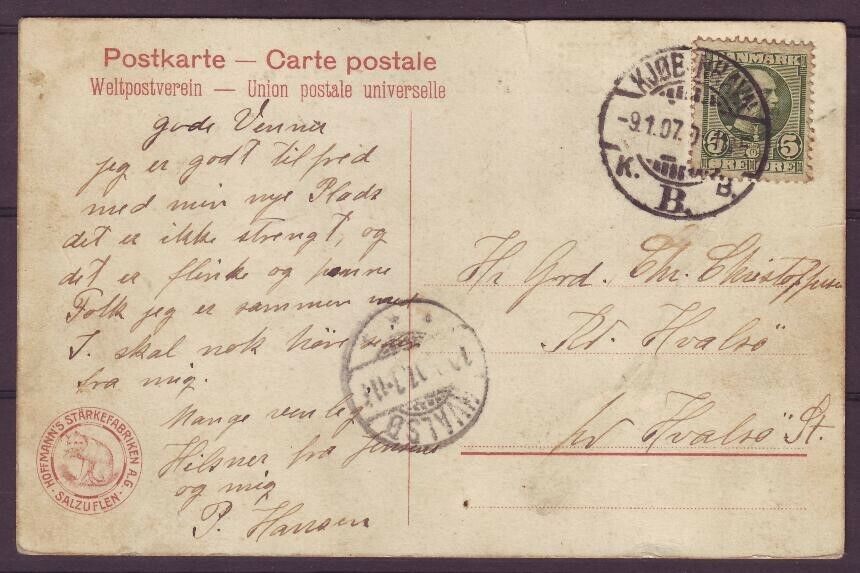 Postkarte — Carte postale
Weltpostverein — Union postale universelle
gode Venner
jeg er godt tilfred
med min nye Plads
det er ikke strengt, og
det er flinke og pænne
Folk jeg er sammen med
I. skal nok høre
fra mig.
Mange venlig
Hilsner fra Jensens
og mig
P. Hansen
HOFFMANN'S STÄRKEFABRIKEN A.G.
SALZUFLEN
KJØBENHAVN
-9.1.07.
K. B. B.
DANMARK
5 5
ØRE ØRE
Hr Grd. Chr. Christoffersen
Hvalsö
pr Hvalsö St.
HVALSØ